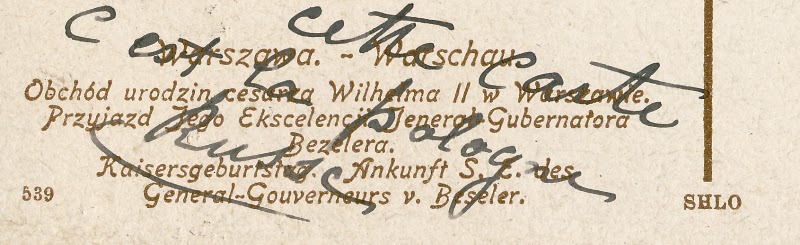 cette carte
c est la Pologne
Russe
Warszawa. - Warschau.
Obchód urodzin cesarza Wilhelma II w Warszawie.
Przyjazd Jego Ekscelencji Jenerał-Gubernatora
Bezelera.
Kaisersgeburtstag. Ankunft S. E. des
General-Gouverneurs v. Beseler.
539
SHLO